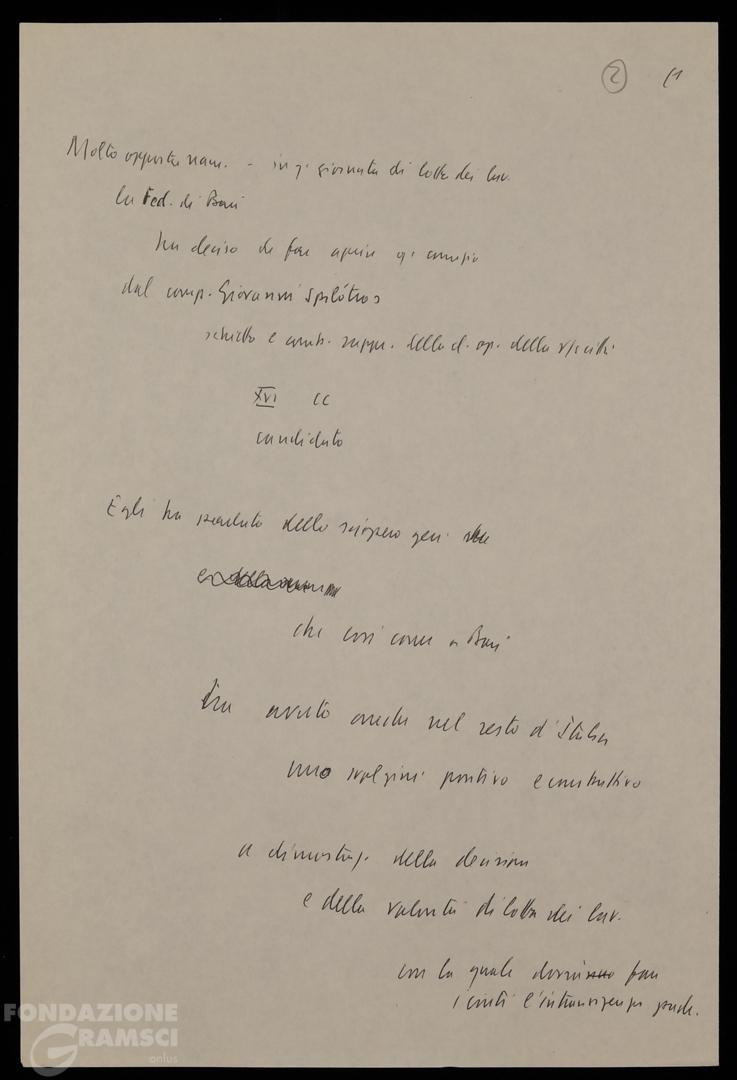 2 (1
Molto opportunam. - in q. giornata di lotta dei lav.
la Fed. di Bari
ha deciso di far aprire q. comizio
dal comp. Giovanni Spilótros
schietto e comb. rappr. della cl. op. della v/ città
XVI CC
candidato
Egli ha parlato dello sciopero gen.
e
che così come a Bari
ha avuto anche nel resto d'Italia
uno svolgim. positivo e costruttivo
a dimostraz. della decisione
e della volontà di lotta dei lav.
con la quale dovrà fare
i conti l'intransigenza padr.
FONDAZIONE
GRAMSCI
onlus